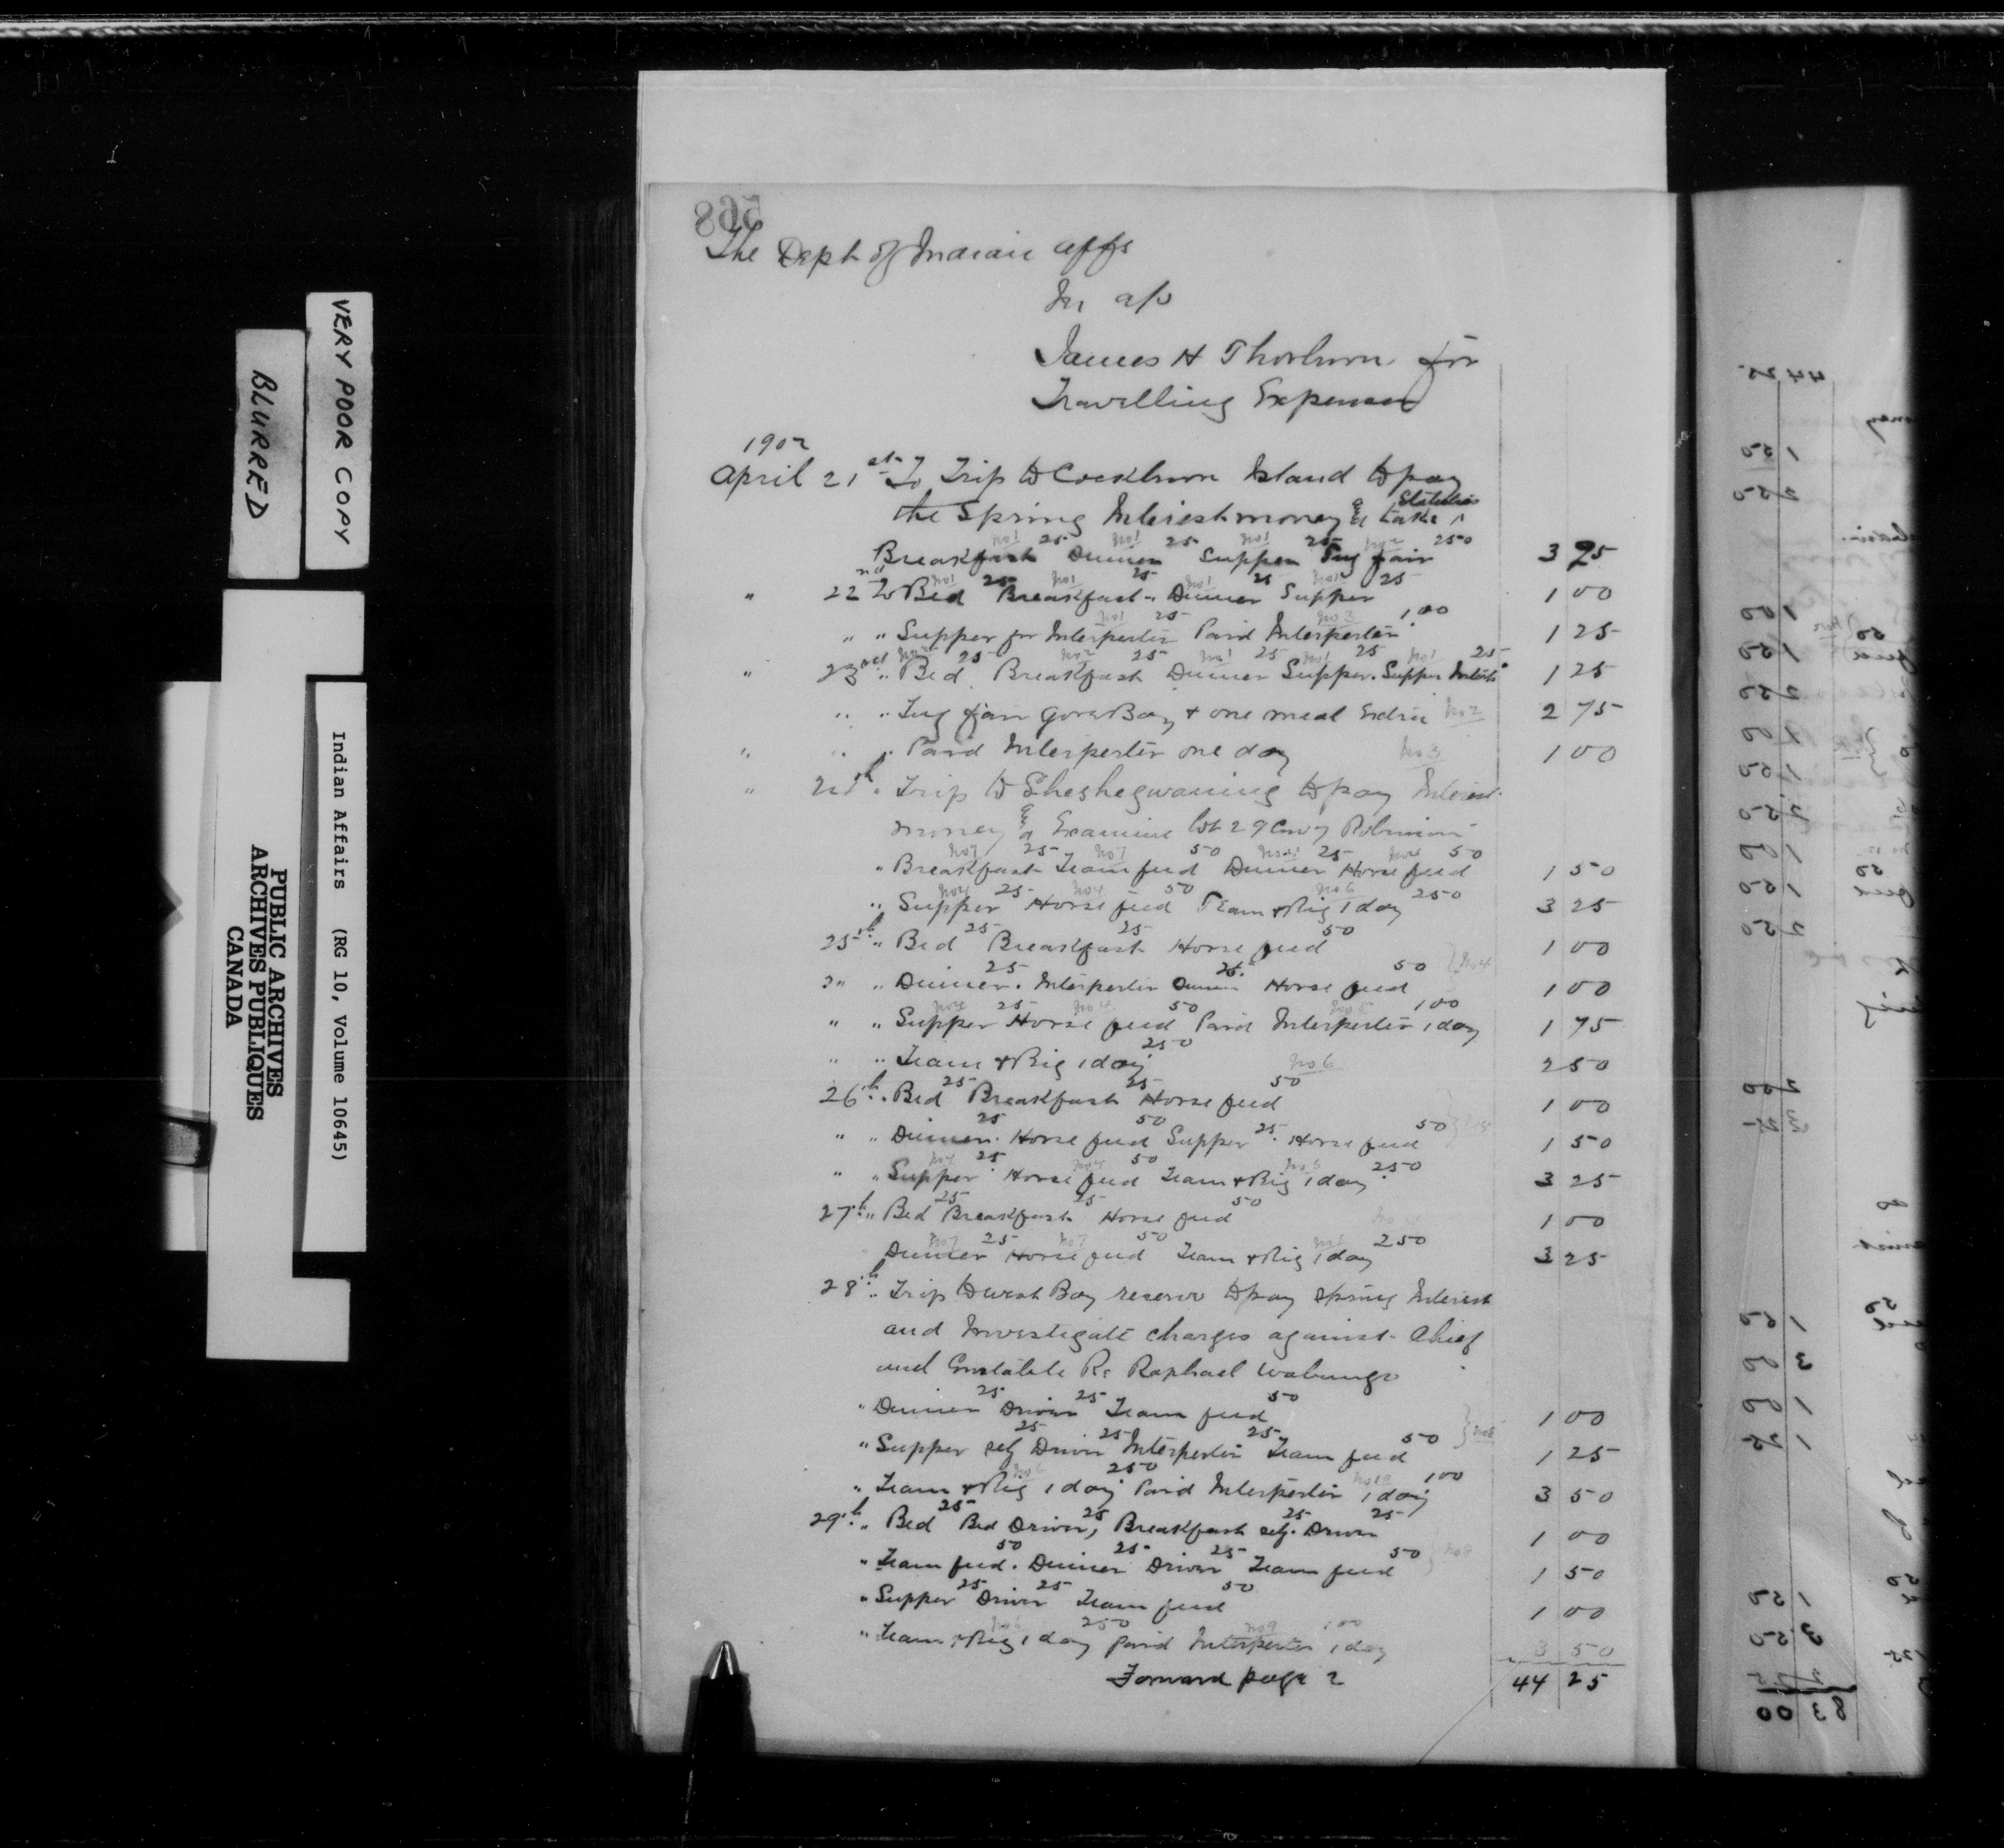 VERY POOR COPY
BLURRED
Indian Affairs (RG 10, Volume 10645)
PUBLIC ARCHIVES
ARCHIVES PUBLIQUES
CANADA
568
The Dept of Indian affs
In a/c
James H Thorburn for
Travelling Expenses
1902
April 21st To Trip to Cockburn Island to pay
the Spring Interest money & take
No1 25 No1 25 No1 25 No2 250
Breakfast Dinner Supper Tug fair 3 25
No1 25 No1 25 No1 25 No1 25
" 22nd To Bed Breakfast " Dinner Supper 1 00
No1 25 No3 100
" " Supper for Interperter Paid Interperter 1 25
No2 25 No2 25 No1 25 No1 25 No1 25
" 23rd " Bed Breakfast Dinner Supper. Supper Intert 1 25
" " Tug fair Gore Bay & one meal Extra No2 2 75
" " " Paid Interperter one day No3 1 00
" 24th " Trip to Sheshegwaning to pay Interest
money & Examine lot 29 Con 7 Robinson
No7 25 No7 50 No4 25 No4 50
" Breakfast Team feed Dinner Horse feed 1 50
No4 25 No4 50 No6 250
" Supper Horse feed Team & Rig 1 day 3 25
25 25 50
25th " Bed Breakfast Horse feed 1 00
25 25 50 No4
" " Dinner. Interperter Dinner Horse feed 1 00
No4 25 No4 50 No5 100
" " Supper Horse feed Paid Interperter 1 day 1 75
250
" " Team & Rig 1 day No6 2 50
25 25 50
26th " Bed Breakfast Horse feed 1 00
25 50 25 50
" " Dinner. Horse feed Supper. Horse feed 1 50
25 50 No6 250
" " Supper Horse feed Team & Rig 1 day 3 25
25 25 50
27th " Bed Breakfast Horse feed 1 00
No7 25 No7 50 No6 250
Dinner Horse feed Team & Rig 1 day 3 25
28th " Trip to west Bay reserve to pay spring Interest
and Investigate charges against Chief
and Constable Re Raphael Wabunge
25 25 50
" Dinner Driver Team feed 1 00
25 25 25 50 No8
" Supper self Driver Interperter Team feed 1 25
No6 250 100
" Team & Rig 1 day Paid Interperter 1 day 3 50
25 25 25 25
29th " Bed Bed Driver, Breakfast self. Driver 1 00
50 25 25 50 No8
" Team feed. Dinner Driver Team feed 1 50
25 25 50
" Supper Driver Team feed 1 00
No6 250 No9 100
" Team & Rig 1 day paid Interperter 1 day 3 50
Forward page 2 44 25